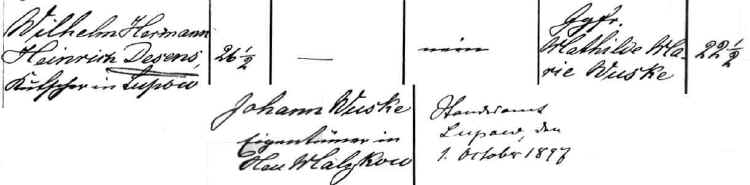 Wilhelm Hermann
Heinrich Desens,
Kutscher in Lupow
26 1/2
—
nein
Ggfr.
Mathilde Ma-
rie Wuske
22 1/2
Johann Wuske
Eigentümer in
Neu Malzkow
Standesamt
Lupow, den
1. October 1897